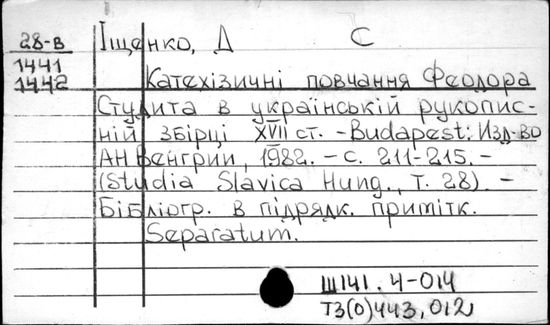 28-в Іщенко, Д С
1441
1442 Катехізичні повчання Феодора
Студита в українській рукопис-
ній збірці XVII ст. - Budapest: Изд-во
АН Венгрии, 1982. - с. 211-215. -
(Studia Slavica Hung., т. 28). -
Бібліогр. в підрядк. примітк.
Separatum.
Ш141.4-014
Т3(0)443,012